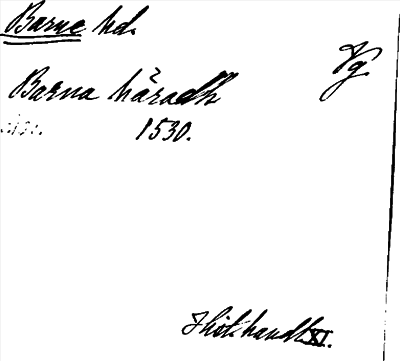 Barne hd.
Vg.
Barna häradh
1530.
Hist. handl. XI.